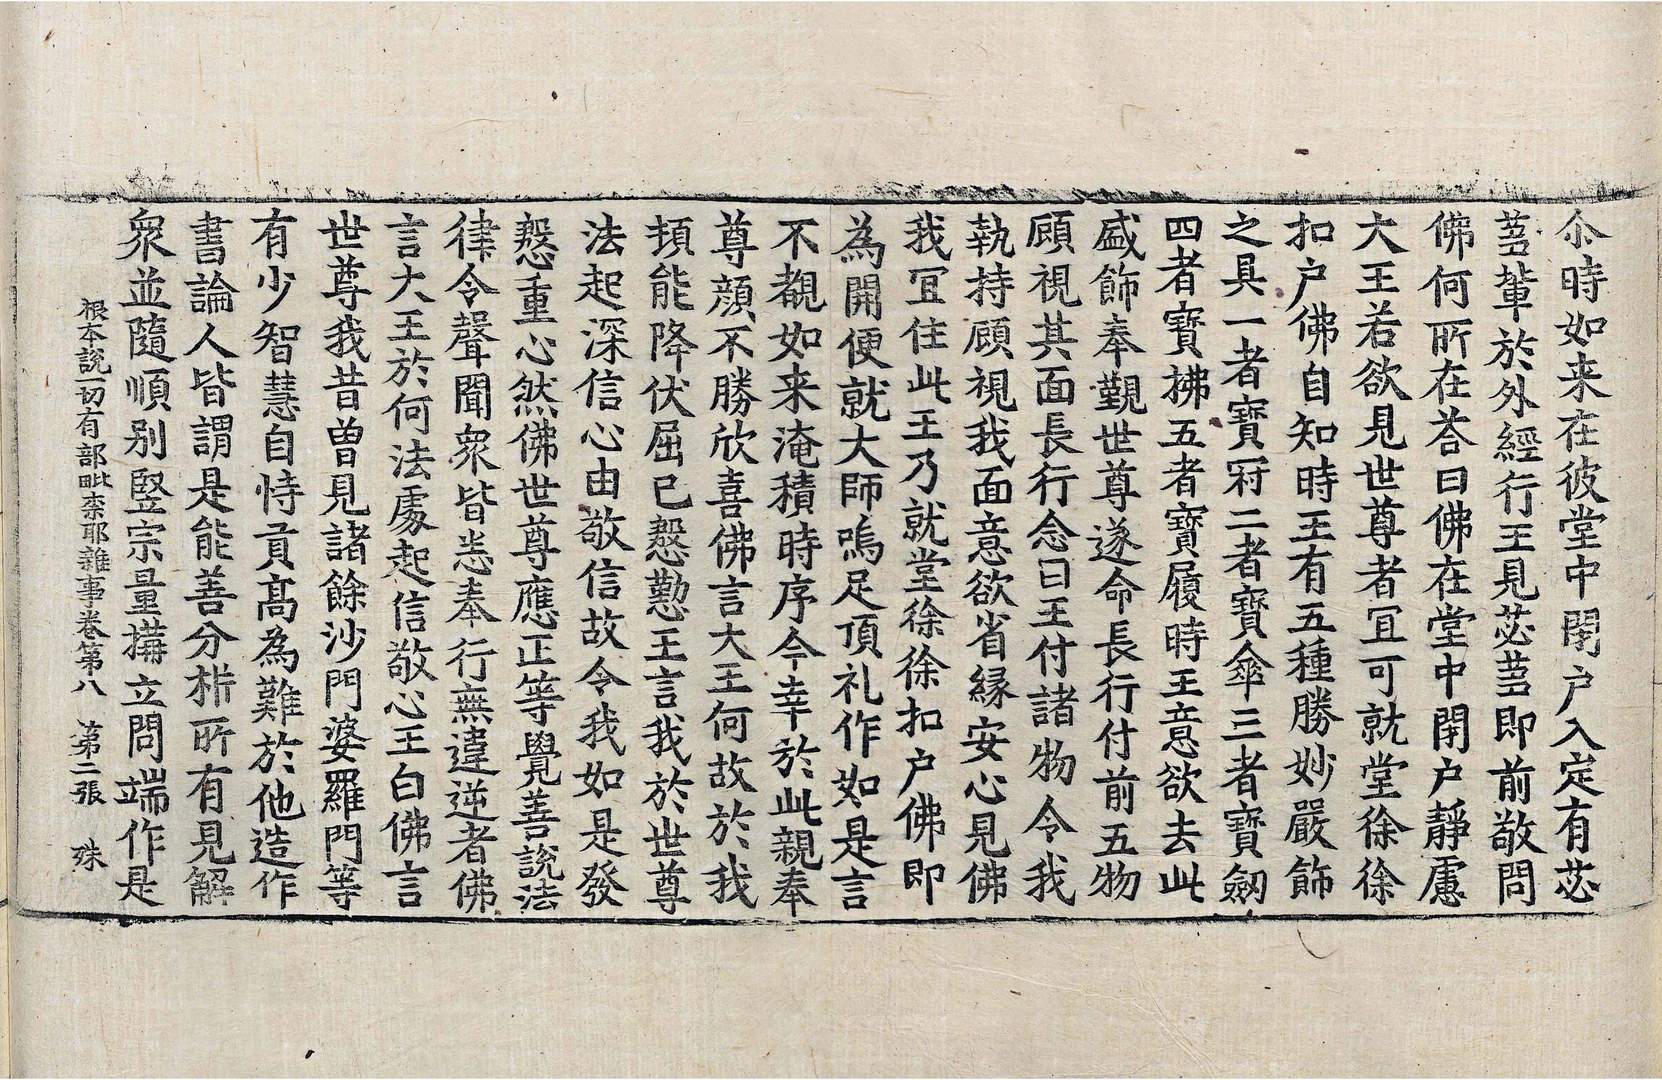 尒時如来在彼堂中閉户入定有苾
蒭輩於外經行王見苾蒭即前敬問
佛何所在荅曰佛在堂中閉户靜慮
大王若欲見世尊者冝可就堂徐徐
扣户佛自知時王有五種勝妙嚴飾
之具一者寶冠二者寶傘三者寶劒
四者寶拂五者寶履時王意欲去此
盛飾奉覲世尊遂命長行付前五物
顧視其面長行念曰王付諸物令我
執持顧視我面意欲省緣安心見佛
我冝住此王乃就堂徐徐扣户佛即
為開便就大師嗚足頂礼作如是言
不覩如来淹積時序今幸於此親奉
尊顔不勝欣喜佛言大王何故於我
頻能降伏屈已慇懃王言我於世尊
法起深信心由敬信故令我如是發
慇重心然佛世尊應正等覺善說法
律令聲聞衆皆悉奉行無違逆者佛
言大王於何法處起信敬心王白佛言
世尊我昔曾見諸餘沙門婆羅門等
有少智慧自恃貢高為難於他造作
書論人皆謂是能善分析所有見解
衆並隨順别竪宗量搆立問端作是
根本說一切有部毗柰耶雜事卷第八　第二張　殊